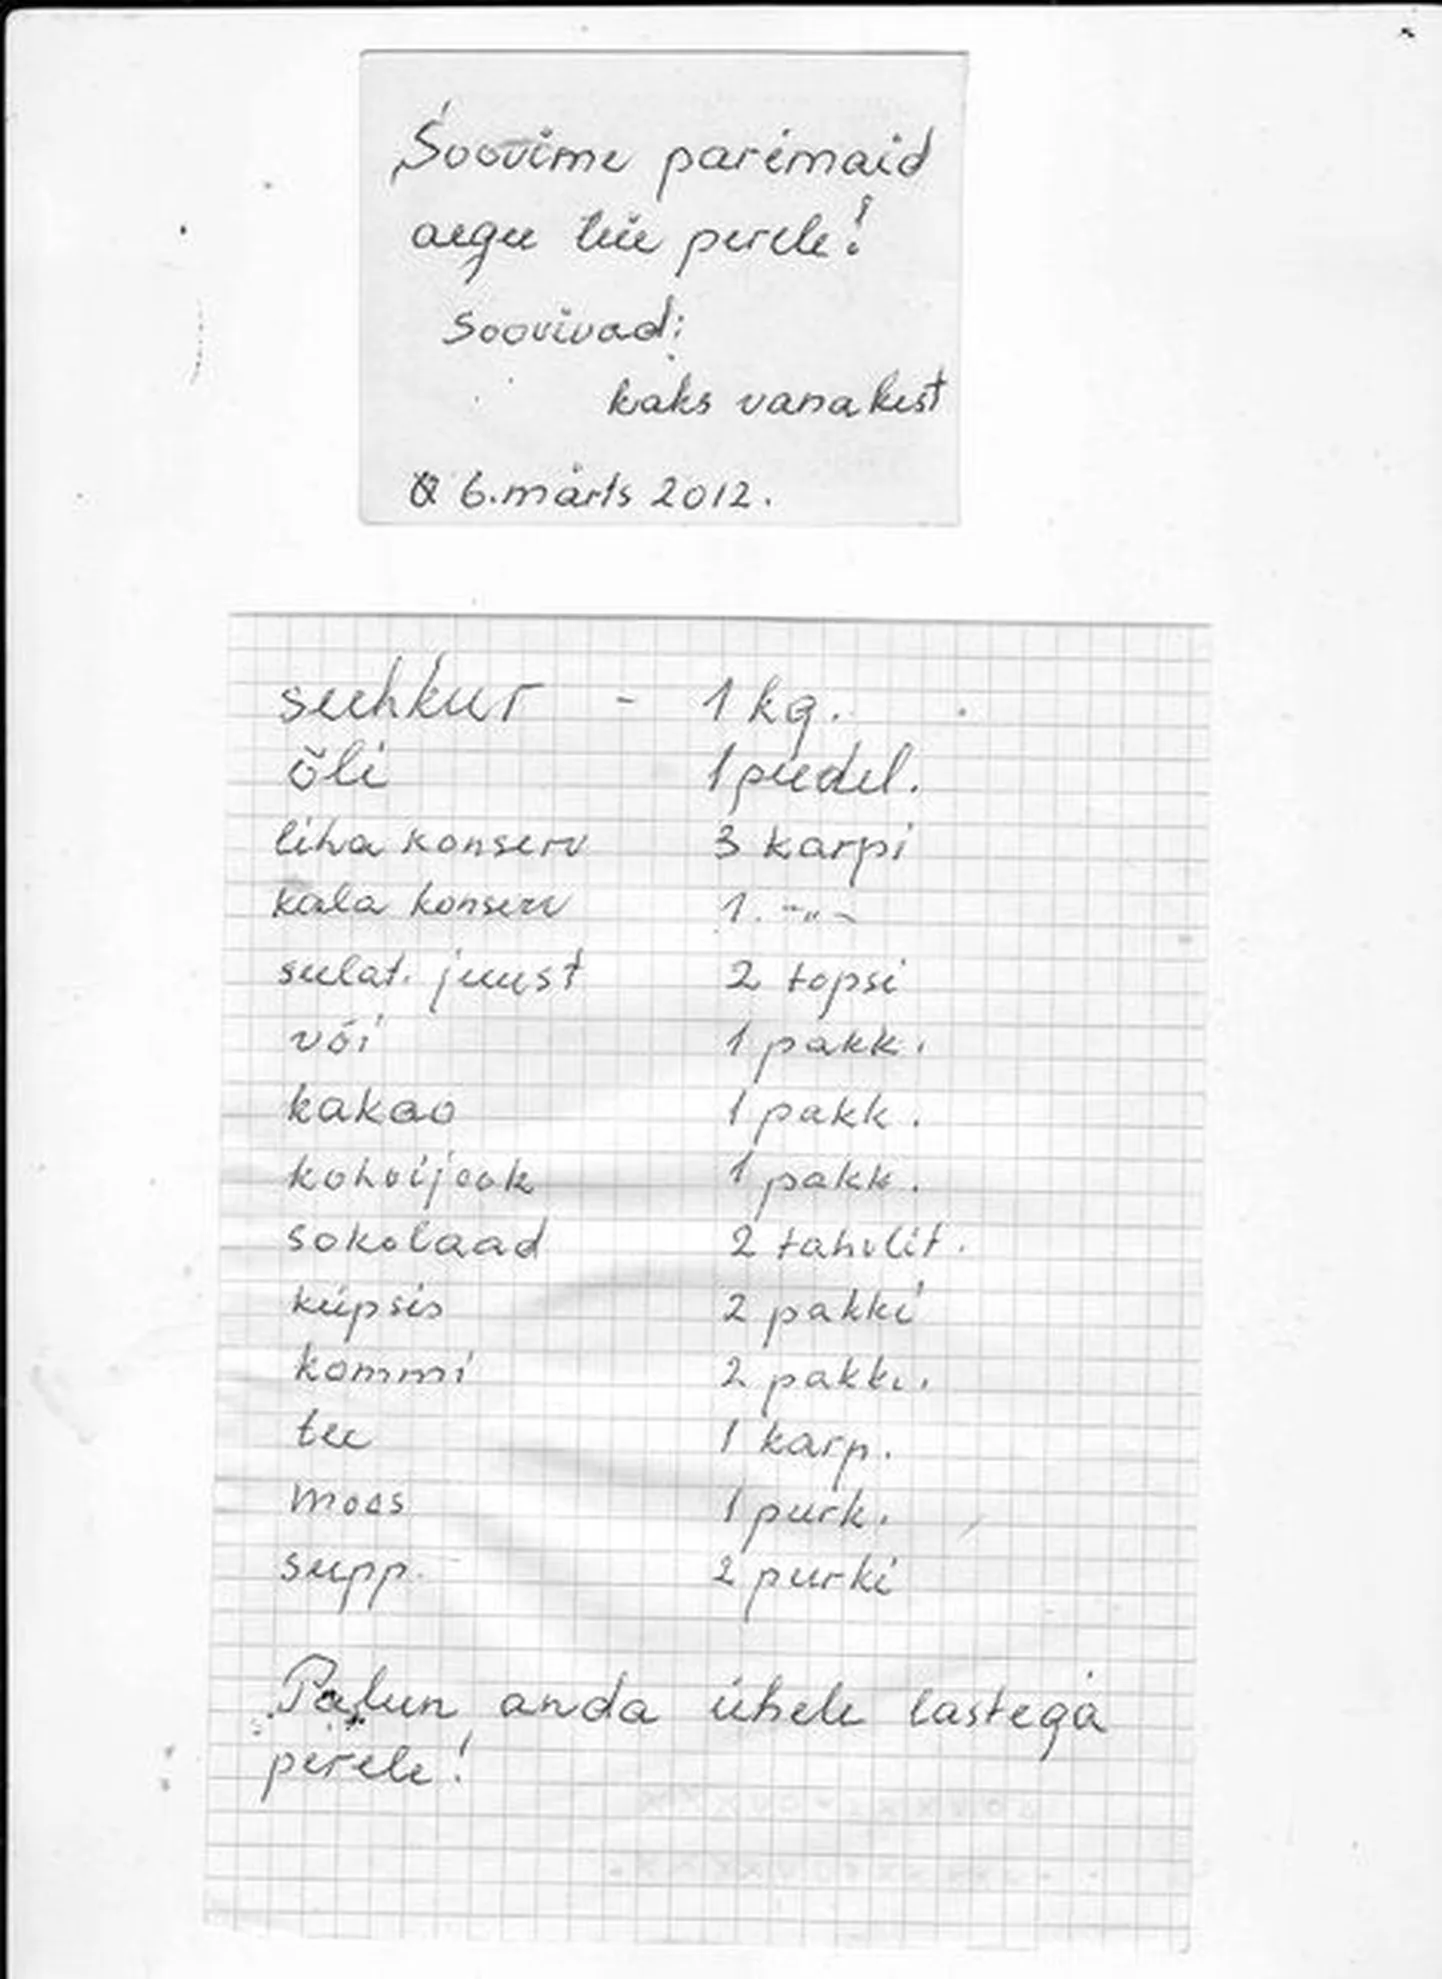 Soovime parimaid
aegu teie perele!
Soovivad:
kaks vanakest
6. märts 2012.
suhkur - 1 kg.
õli 1 pudel.
liha konserv 3 karpi
kala konserv 1. -"-
sulat. juust 2 topsi
või 1 pakk.
kakao 1 pakk.
kohvijook 1 pakk.
sokolaad 2 tahvlit.
küpsis 2 pakki
kommi 2 pakki.
tee 1 karp.
moos 1 purk.
supp. 2 purki
Palun anda ühele lastega
perele!